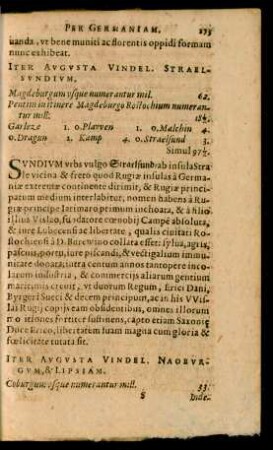 PER GERMANIAM. 273
uanda, vt bene muniti ac florentis oppidi formam
nunc exhibeat.
ITER AVGVSTA VINDEL. STRAEL-
SVNDIVM.
Magdeburgum vsque numerantur mil. 62.
Pentini in itinere Magdeburgo Rostochium numeran-
tur mill. 18½.
1. o. Plawen 1. o. Malchin 4.
o. Dragun 1. Kamp 4. o. Straelsund 3.
Simul 97½.
SVNDIVM vrbs vulgo Straelsund ab insula Strae
le vicina & freto quod Rugiæ insulas à Germa-
niæ extremæ continente dirimit, & Rugiæ princi-
patum medium interlabitur, nomen habens à Ru-
giæ principe Iarimaro primùm inchoata, & à filio
illius Vislao, suæ vxoris Campé absoluta,
& iure Lubecensi ac libertate, quali ciuitati Ros-
tochiensi à D. Burewino collata esset: sylua, agris,
pascuis, portu, iure piscandi, & vectigalium immu-
nitate donata, intra centum annos tantopere inco-
larum industria, & commerciis aliarum gentium
maritimis creuit, vt duorum Regum, Erici Dani,
Byrgeri Sueci & decem principum, ac in his VVis-
lai Rugij copijs eam obsidentibus, omnes illorum
conatus fortiter sustinens, capto etiam Saxoniæ
Duce Erico, libertatem suam magna cum gloria &
fœlicitate tutata sit.
ITER AVGVSTA VINDEL. NAOBVR-
GVM, & LIPSIAM.
Coburgum vsque numerantur mill. 33.
S Inde